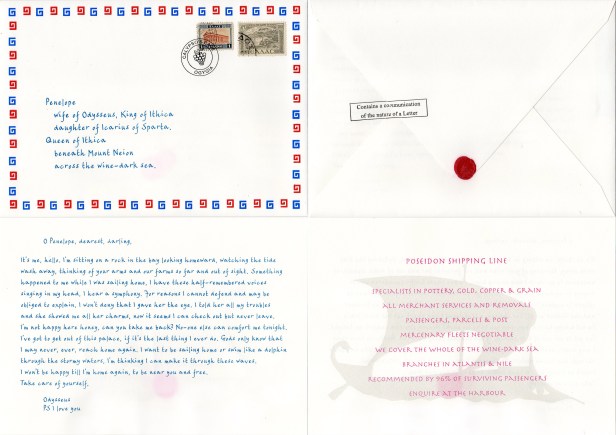 CALYPSO
OGYGIA
Penelope
wife of Odysseus, King of Ithica
daughter of Icarius of Sparta.
Queen of Ithica
beneath Mount Neion
across the wine-dark sea.
Contains a communication
of the nature of a Letter
O Penelope, dearest, darling,
It's me, hello, I'm sitting on a rock in the bay looking homeward, watching the tide
wash away, thinking of your arms and our farms so far and out of sight. Something
happened to me while I was sailing home, I have these half-remembered voices
singing in my head, I hear a symphony. For reasons I cannot defend and may be
obliged to explain, I won't deny that I gave her the eye, I told her all my troubles
and she showed me all her charms, now it seems I can check out but never leave.
I'm not happy here honey, can you take me back? No-one else can comfort me tonight,
I've got to get out of this palace, if it's the last thing I ever do. Gods only know that
I may never, ever, reach home again. I want to be sailing home or swim like a dolphin
through the stormy waters, I'm thinking I can make it through these waves.
I won't be happy till I'm home again, to be near you and free.
Take care of yourself,
Odysseus
PS I love you
POSEIDON SHIPPING LINE
SPECIALISTS IN POTTERY, GOLD, COPPER & GRAIN
ALL MERCHANT SERVICES AND REMOVALS
PASSENGERS, PARCELS & POST
MERCENARY FLEETS NEGOTIABLE
WE COVER THE WHOLE OF THE WINE-DARK SEA
BRANCHES IN ATLANTIS & NILE
RECOMMENDED BY 96% OF SURVIVING PASSENGERS
ENQUIRE AT THE HARBOUR